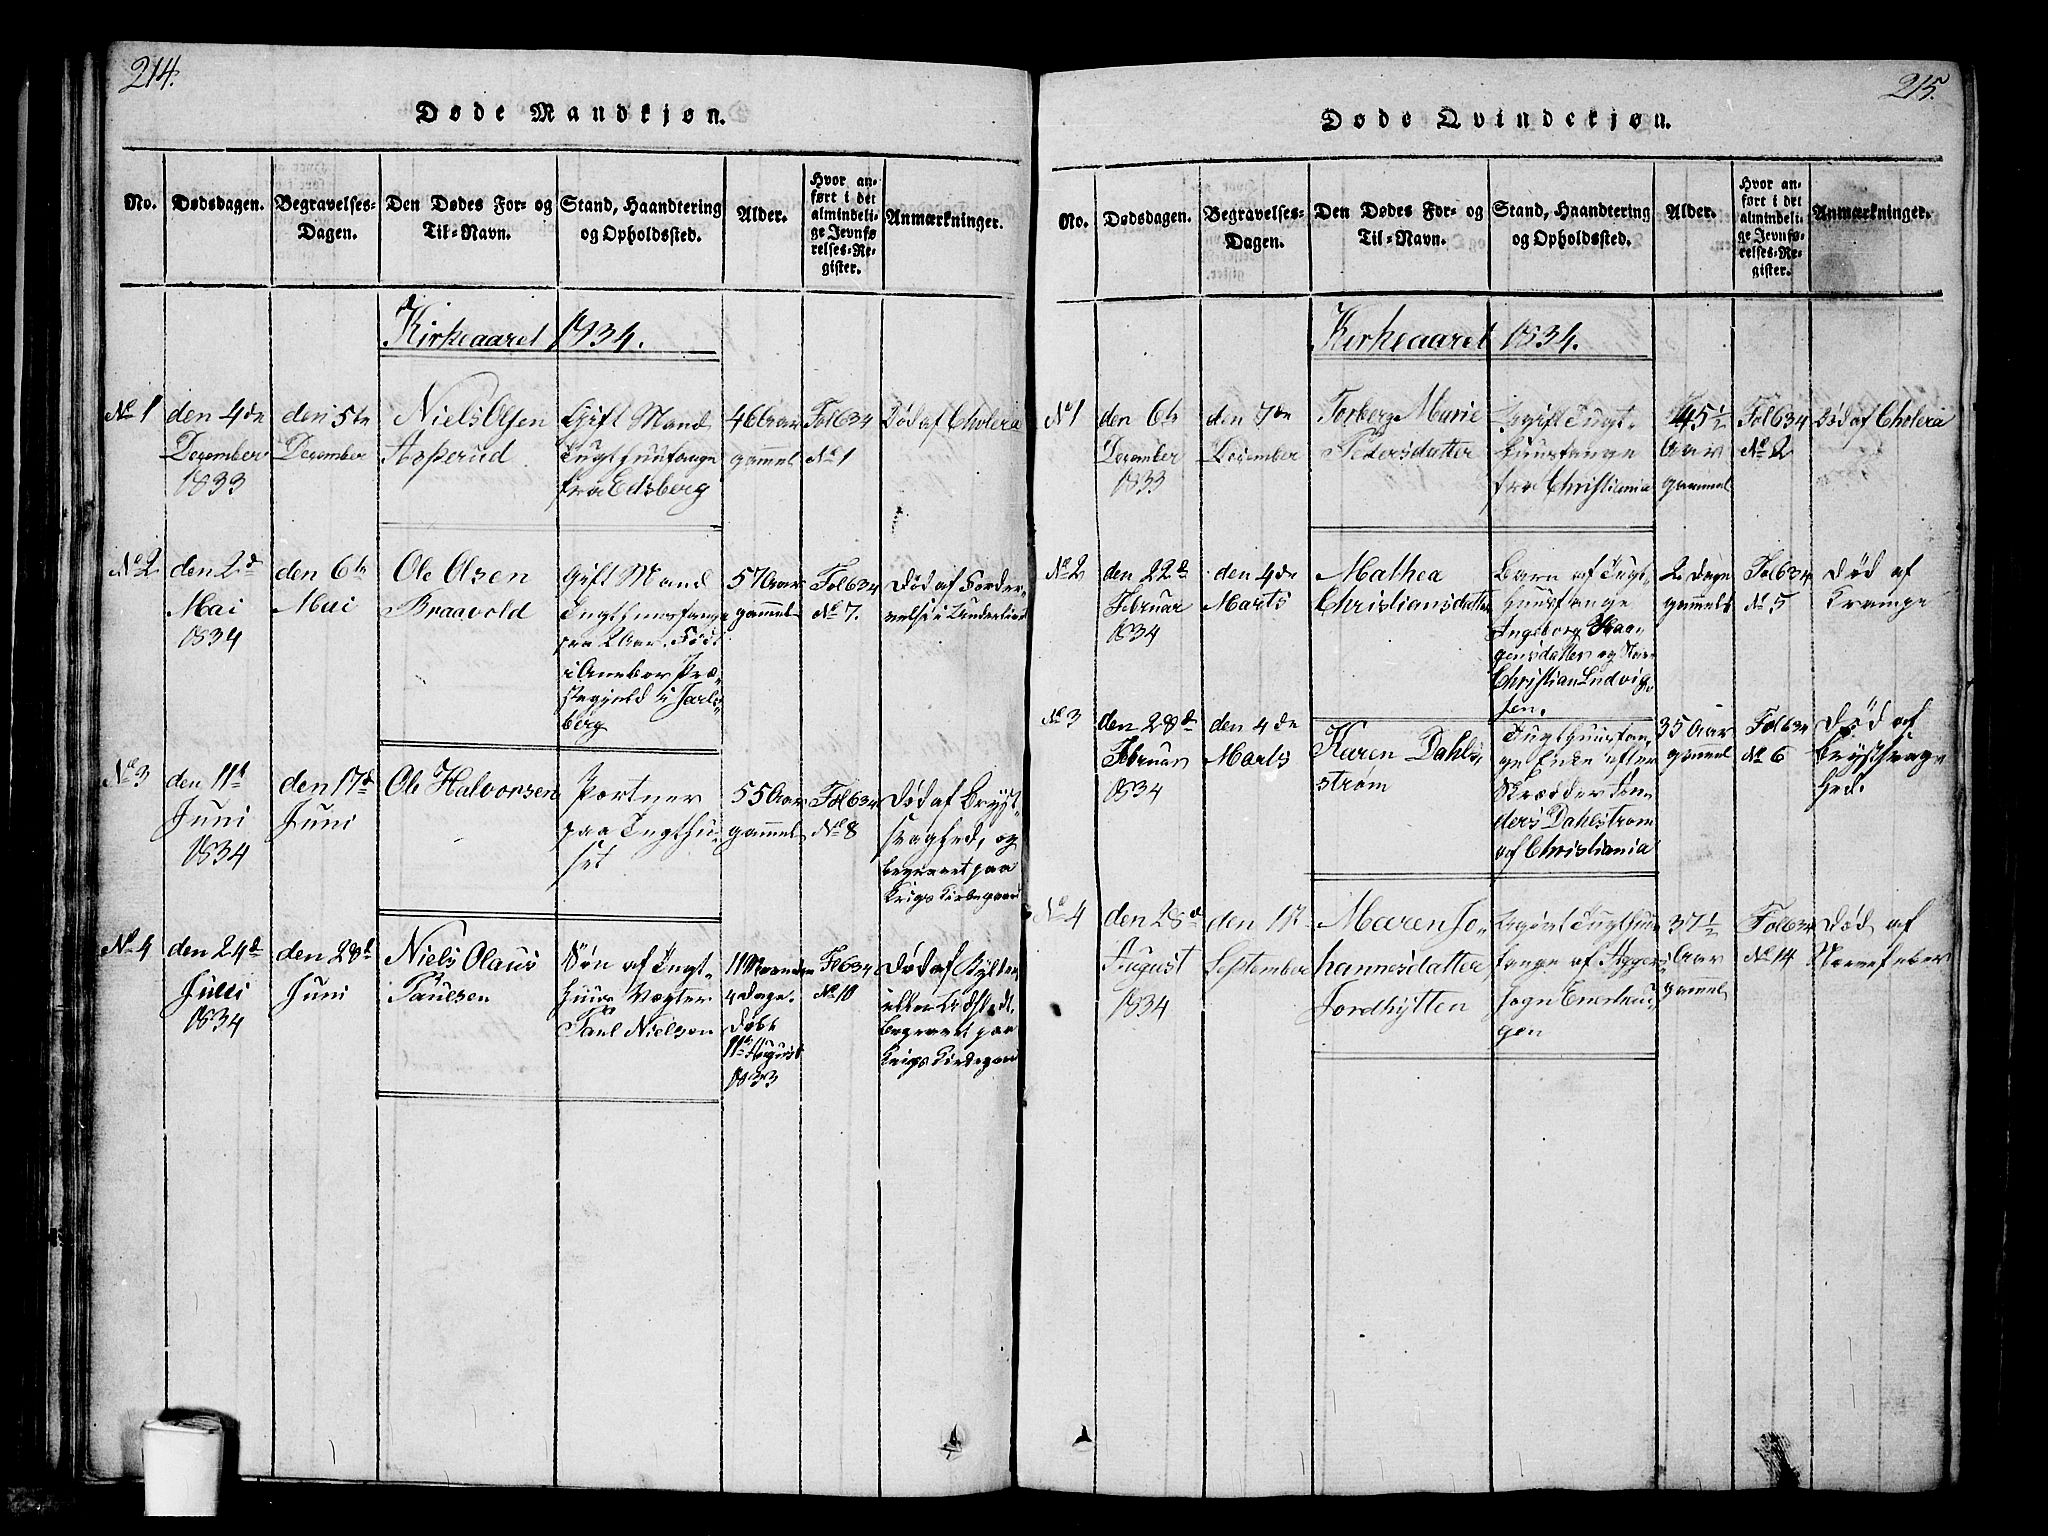 214.
Døde Mandkjøn.
No.
Dødsdagen.
Begravelses-
Dagen.
Den Dødes For- og
Til-Navn.
Stand, Haandtering
og Opholdssted.
Alder.
Hvor an-
ført i det
almindeli-
ge Jevnfø-
relses-Re-
gister.
Anmærkninger.
Kirkeaaret 1834.
No 1
den 4de
December
1833
den 5te
December
Niels Olsen
Asperud
Gift Mand
Tugthuusfange
fra Edsberg
46 Aar
gammel
Fol 634
No 1
Død af Cholera
No 2
den 2d
Mai
1834
den 6te
Mai
Ole Olsen
Braavold
Gift Mand
Tugthuusfange
paa 2 Aar. Født
i Aneboe Præ-
stegjeld i Jarls-
berg
57 Aar
gammel
Fol 634
No 7.
Død af Forder-
velse i Underlivet
No 3
den 11te
Juni
1834
den 17de
Juni
Ole Halvorsen
Portner
paa Tugthu-
set
55 Aar
gammel
Fol 634
No 8
Død af Bryst-
svaghed, og
begravet paa
Krigs Kirkegaard
No 4
den 24de
Juni
1834
den 28d
Juni
Niels Olaus
Paulsen
Søn af Tugt-
huus Vægter
Paul Nielsen
11 Maaneder
4 Dage.
Døbt
11te August
1833
Fol 634
No 10
Død af
begravet paa
Krigs Kirkegaard
215.
Døde Qvindekjøn.
No.
Dødsdagen.
Begravelses-
Dagen.
Den Dødes For- og
Til-Navn.
Stand, Haandtering
og Opholdssted.
Alder.
Hvor an-
ført i det
almindeli-
ge Jevnfø-
relses-Re-
gister.
Anmærkninger.
Kirkeaaret 1834.
No 1
den 6te
December
1833
den 7de
December
Torberg Marie
Pedersdatter
Ugift Tugt-
huusfange
fra Christiania
45 1/2
Aar
gammel
Fol 634
No 2
Død af Cholera
No 2
den 22d
Februar
1834
den 4de
Marts
Mathea
Christiansdatter
Barn af Tugt-
huusfange
Ingeborg Haa-
gensdatter og
Christian Ludvig-
sen.
2 Dage
gammel
Fol 634
No 5
Død af
Krampe
No 3
den 28d
Februar
1834
den 4de
Marts
Karen Dahl-
strøm
Tugthuusfan-
ge Enke efter
Skrædder
Dahlstrøm
af Christiania
35 Aar
gammel
Fol 634
No 6
Død af
Brystsvag-
hed.
No 4
den 28d
August
1834
den 1st
September
Maren Jo-
hannesdatter
Jordhytten
Ugivt Tugthuus-
fange af Aggers
Sogn Enerhau-
gen
37 1/2
Aar
gammel
Fol 634
No 14
Død af
Nervefeber